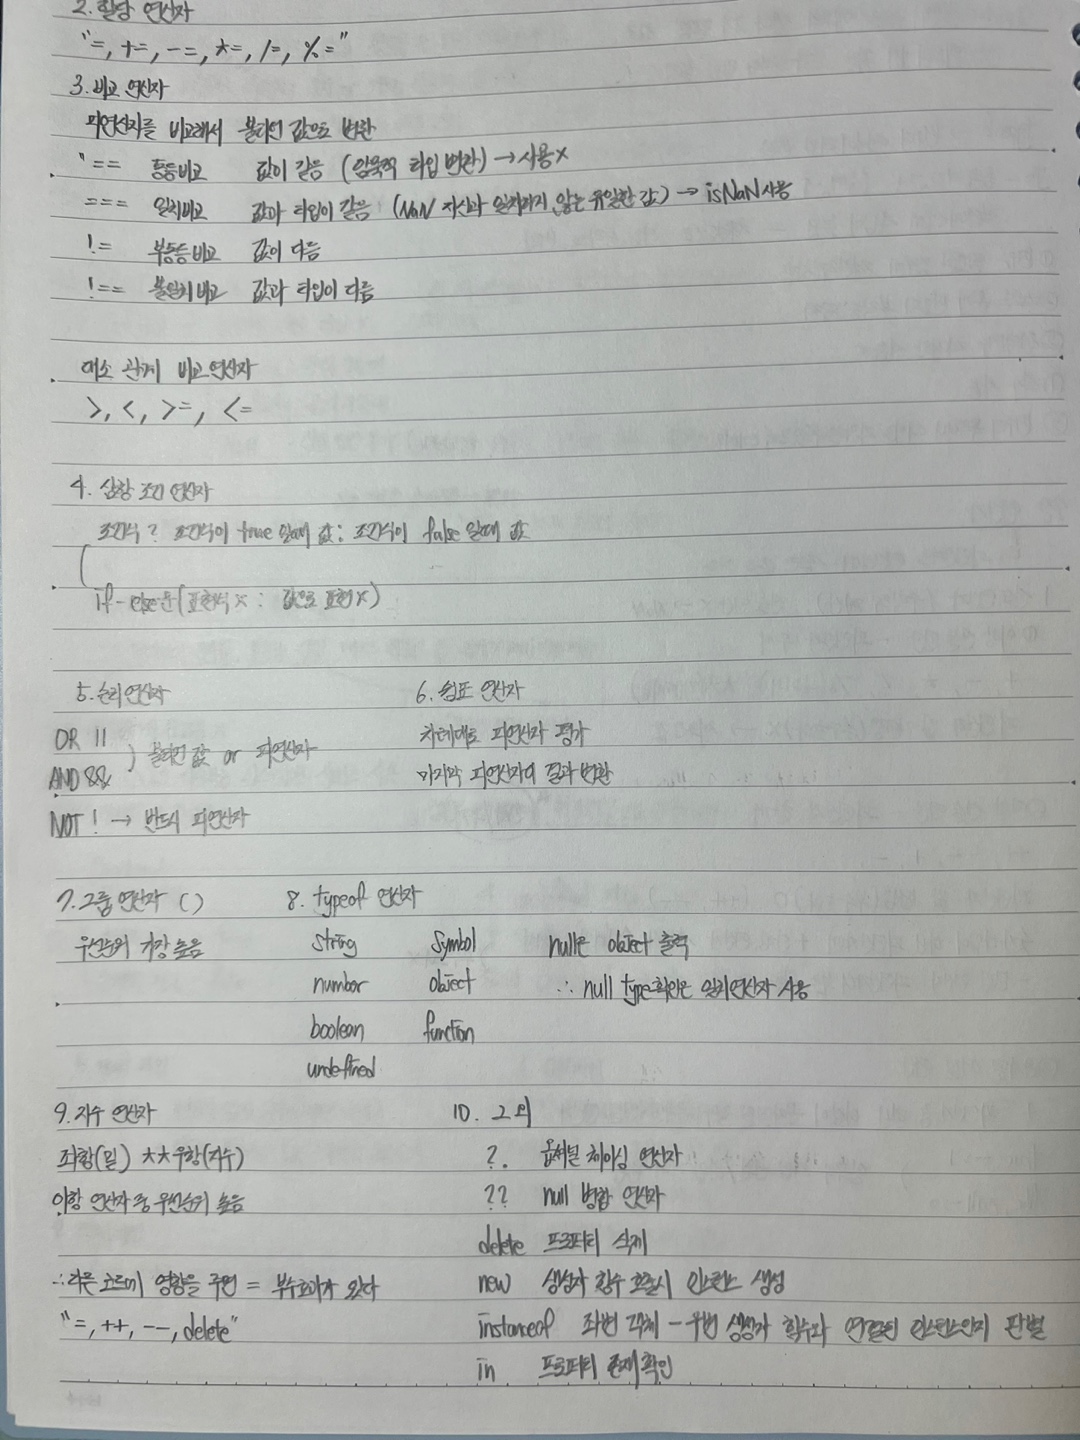 2. 할당 연산자
"=, +=, -=, *=, /=, %="
3. 비교 연산자
피연산자를 비교해서 불리언 값으로 반환
"== 동등비교 값이 같음 (암묵적 타입 변환) → 사용×
=== 일치비교 값과 타입이 같음 (NaN 자신과 일치하지 않는 유일한 값) → isNaN 사용
!= 부동등비교 값이 다름
!== 불일치비교 값과 타입이 다름
대소 관계 비교연산자
>, <, >=, <=
4. 삼항 조건 연산자
조건식 ? 조건식이 true 일때 값 : 조건식이 false 일때 값
if-else문(표현식× : 값으로 표현×)
5. 논리연산자
OR ||
AND &&
) 불리언 값 or 피연산자
NOT ! → 반드시 피연산자
6. 쉼표 연산자
차례대로 피연산자 평가
마지막 피연산자의 결과 반환
7. 그룹 연산자 ( )
우선순위 가장 높음
8. typeof 연산자
string symbol null은 object 출력
number object ∴ null type확인은 일치연산자 사용
boolean function
undefined
9. 지수 연산자
좌항(밑) **우항(지수)
이항 연산자 중 우선순위 높음
∴ 다른 코드에 영향을 주면 = 부수효과가 있다
"=, ++, --, delete"
10. 그외
?. 옵셔널 체이닝 연산자
?? null 병합 연산자
delete 프로퍼티 삭제
new 생성자 함수 호출시 인스턴스 생성
instanceof 좌변 객체 - 우변 생성자 함수와 연결된 인스턴스인지 판별
in 프로퍼티 존재 확인